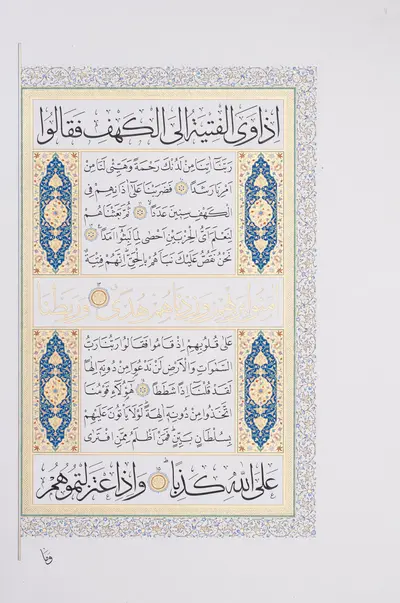 اِذْ اَوَى الْفِتْيَةُ اِلَى الْكَهْفِ فَقَالُوا
رَبَّنَا اٰتِنَا مِنْ لَدُنْكَ رَحْمَةً وَهَيِّئْ لَنَا مِنْ
اَمْرِنَا رَشَدًا ۝ فَضَرَبْنَا عَلٰى اٰذَانِهِمْ فِى
الْكَهْفِ سِنِينَ عَدَدًا ۝ ثُمَّ بَعَثْنَاهُمْ
لِنَعْلَمَ اَىُّ الْحِزْبَيْنِ اَحْصٰى لِمَا لَبِثُوا اَمَدًا ۝
نَحْنُ نَقُصُّ عَلَيْكَ نَبَاَهُمْ بِالْحَقِّ اِنَّهُمْ فِتْيَةٌ
اٰمَنُوا بِرَبِّهِمْ وَزِدْنَاهُمْ هُدًى ۝ وَرَبَطْنَا
عَلٰى قُلُوبِهِمْ اِذْ قَامُوا فَقَالُوا رَبُّنَا رَبُّ
السَّمٰوَاتِ وَالْاَرْضِ لَنْ نَدْعُوَا مِنْ دُونِهٖ اِلٰهًا
لَقَدْ قُلْنَا اِذًا شَطَطًا ۝ هٰؤُلَاءِ قَوْمُنَا
اتَّخَذُوا مِنْ دُونِهٖ اٰلِهَةً لَوْلَا يَاْتُونَ عَلَيْهِمْ
بِسُلْطَانٍ بَيِّنٍ فَمَنْ اَظْلَمُ مِمَّنِ افْتَرٰى
عَلَى اللّٰهِ كَذِبًا ۝ وَاِذِ اعْتَزَلْتُمُوهُمْ
وَمَا